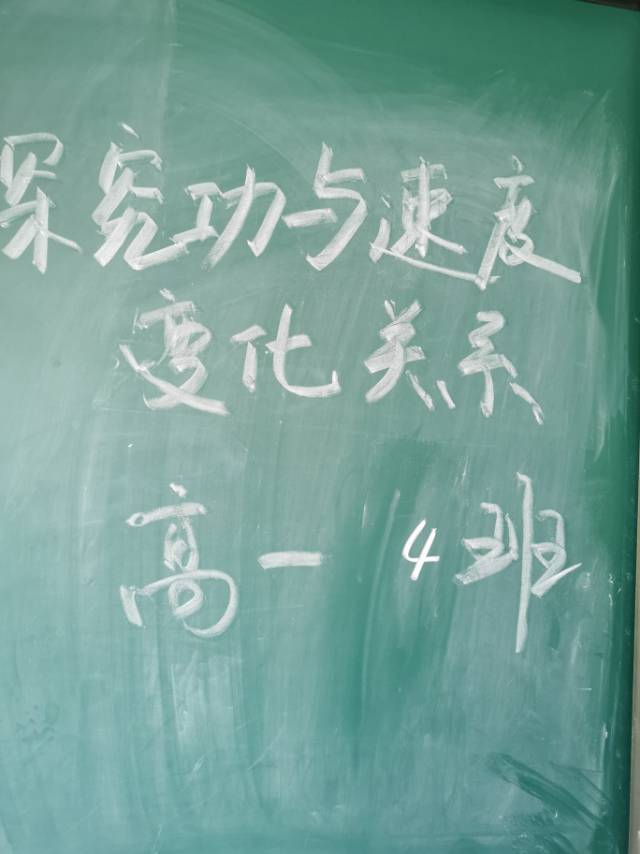 探究功与速度
变化关系
高一 4班